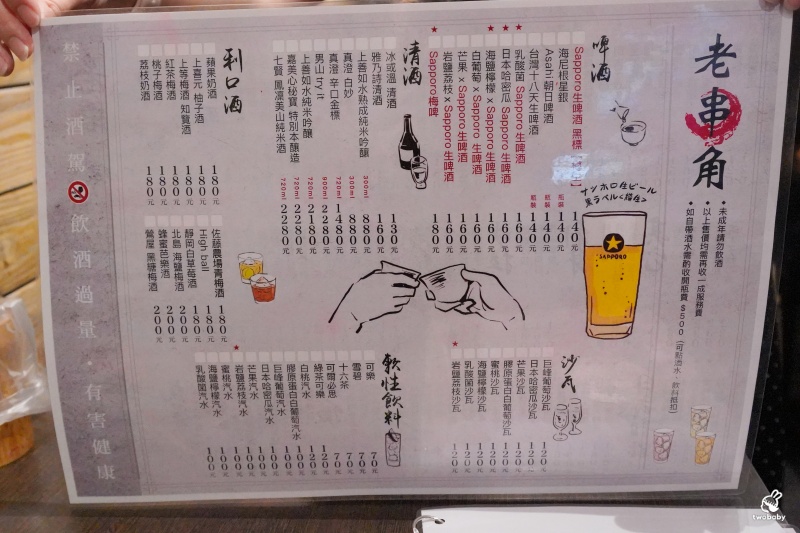 老串角
• 未成年請勿飲酒
• 以上售價均需再收一成服務費
• 如自帶酒水需酌收開瓶費 $500 (可點酒水、飲料抵扣)
啤酒
Sapporo 生啤酒 黑標 140元
海尼根星銀 瓶裝 140元
Asahi 朝日啤酒 瓶裝 140元
台灣十八天生啤酒 瓶裝 140元
乳酸菌 Sapporo 生啤酒 160元
日本哈密瓜 Sapporo 生啤酒 160元
海鹽檸檬 x Sapporo 生啤酒 160元
白葡萄 x Sapporo 生啤酒 160元
芒果 x Sapporo 生啤酒 160元
岩鹽荔枝 x Sapporo 生啤酒 160元
Sapporo 梅啤 180元
サッポロ生ビール
黒ラベル<樽生>
SAPPORO
清酒
冰或溫 清酒 130元
雅乃詩清酒 160元
上善如水熟成純米吟釀 300ml 880元
真澄 白妙 300ml 880元
真澄 辛口金標 720ml 1480元
男山 try it 900ml 2180元
上善如水純米吟釀 720ml 2280元
嘉美心秘寶 特別本釀造 720ml 2280元
七賢 風凜美山純米酒 720ml 2280元
利口酒
蘋果奶酒 180元
上喜元 柚子酒 180元
上等梅酒 知覽酒 180元
紅茶梅酒 180元
桃子梅酒 180元
荔枝奶酒 180元
佐藤農場青梅酒 180元
High ball 180元
靜岡白草莓酒 180元
北島 海鹽梅酒 200元
蜂蜜芭樂酒 200元
鶯屋 黑糖梅酒 200元
沙瓦
巨峰葡萄沙瓦 120元
日本哈密瓜沙瓦 120元
膠原蛋白白葡萄沙瓦 120元
蜜桃沙瓦 120元
海鹽檸檬沙瓦 120元
乳酸菌沙瓦 120元
岩鹽荔枝沙瓦 120元
軟性飲料
可樂 70元
雪碧 70元
十六茶 70元
可爾必思 70元
綠茶可樂 120元
白桃汽水 100元
膠原蛋白白葡萄汽水 100元
巨峰葡萄汽水 100元
日本哈密瓜汽水 100元
芒果汽水 100元
岩鹽荔枝汽水 100元
蜜桃汽水 100元
海鹽檸檬汽水 100元
乳酸菌汽水 100元
禁止酒駕 飲酒過量，有害健康
twobaby